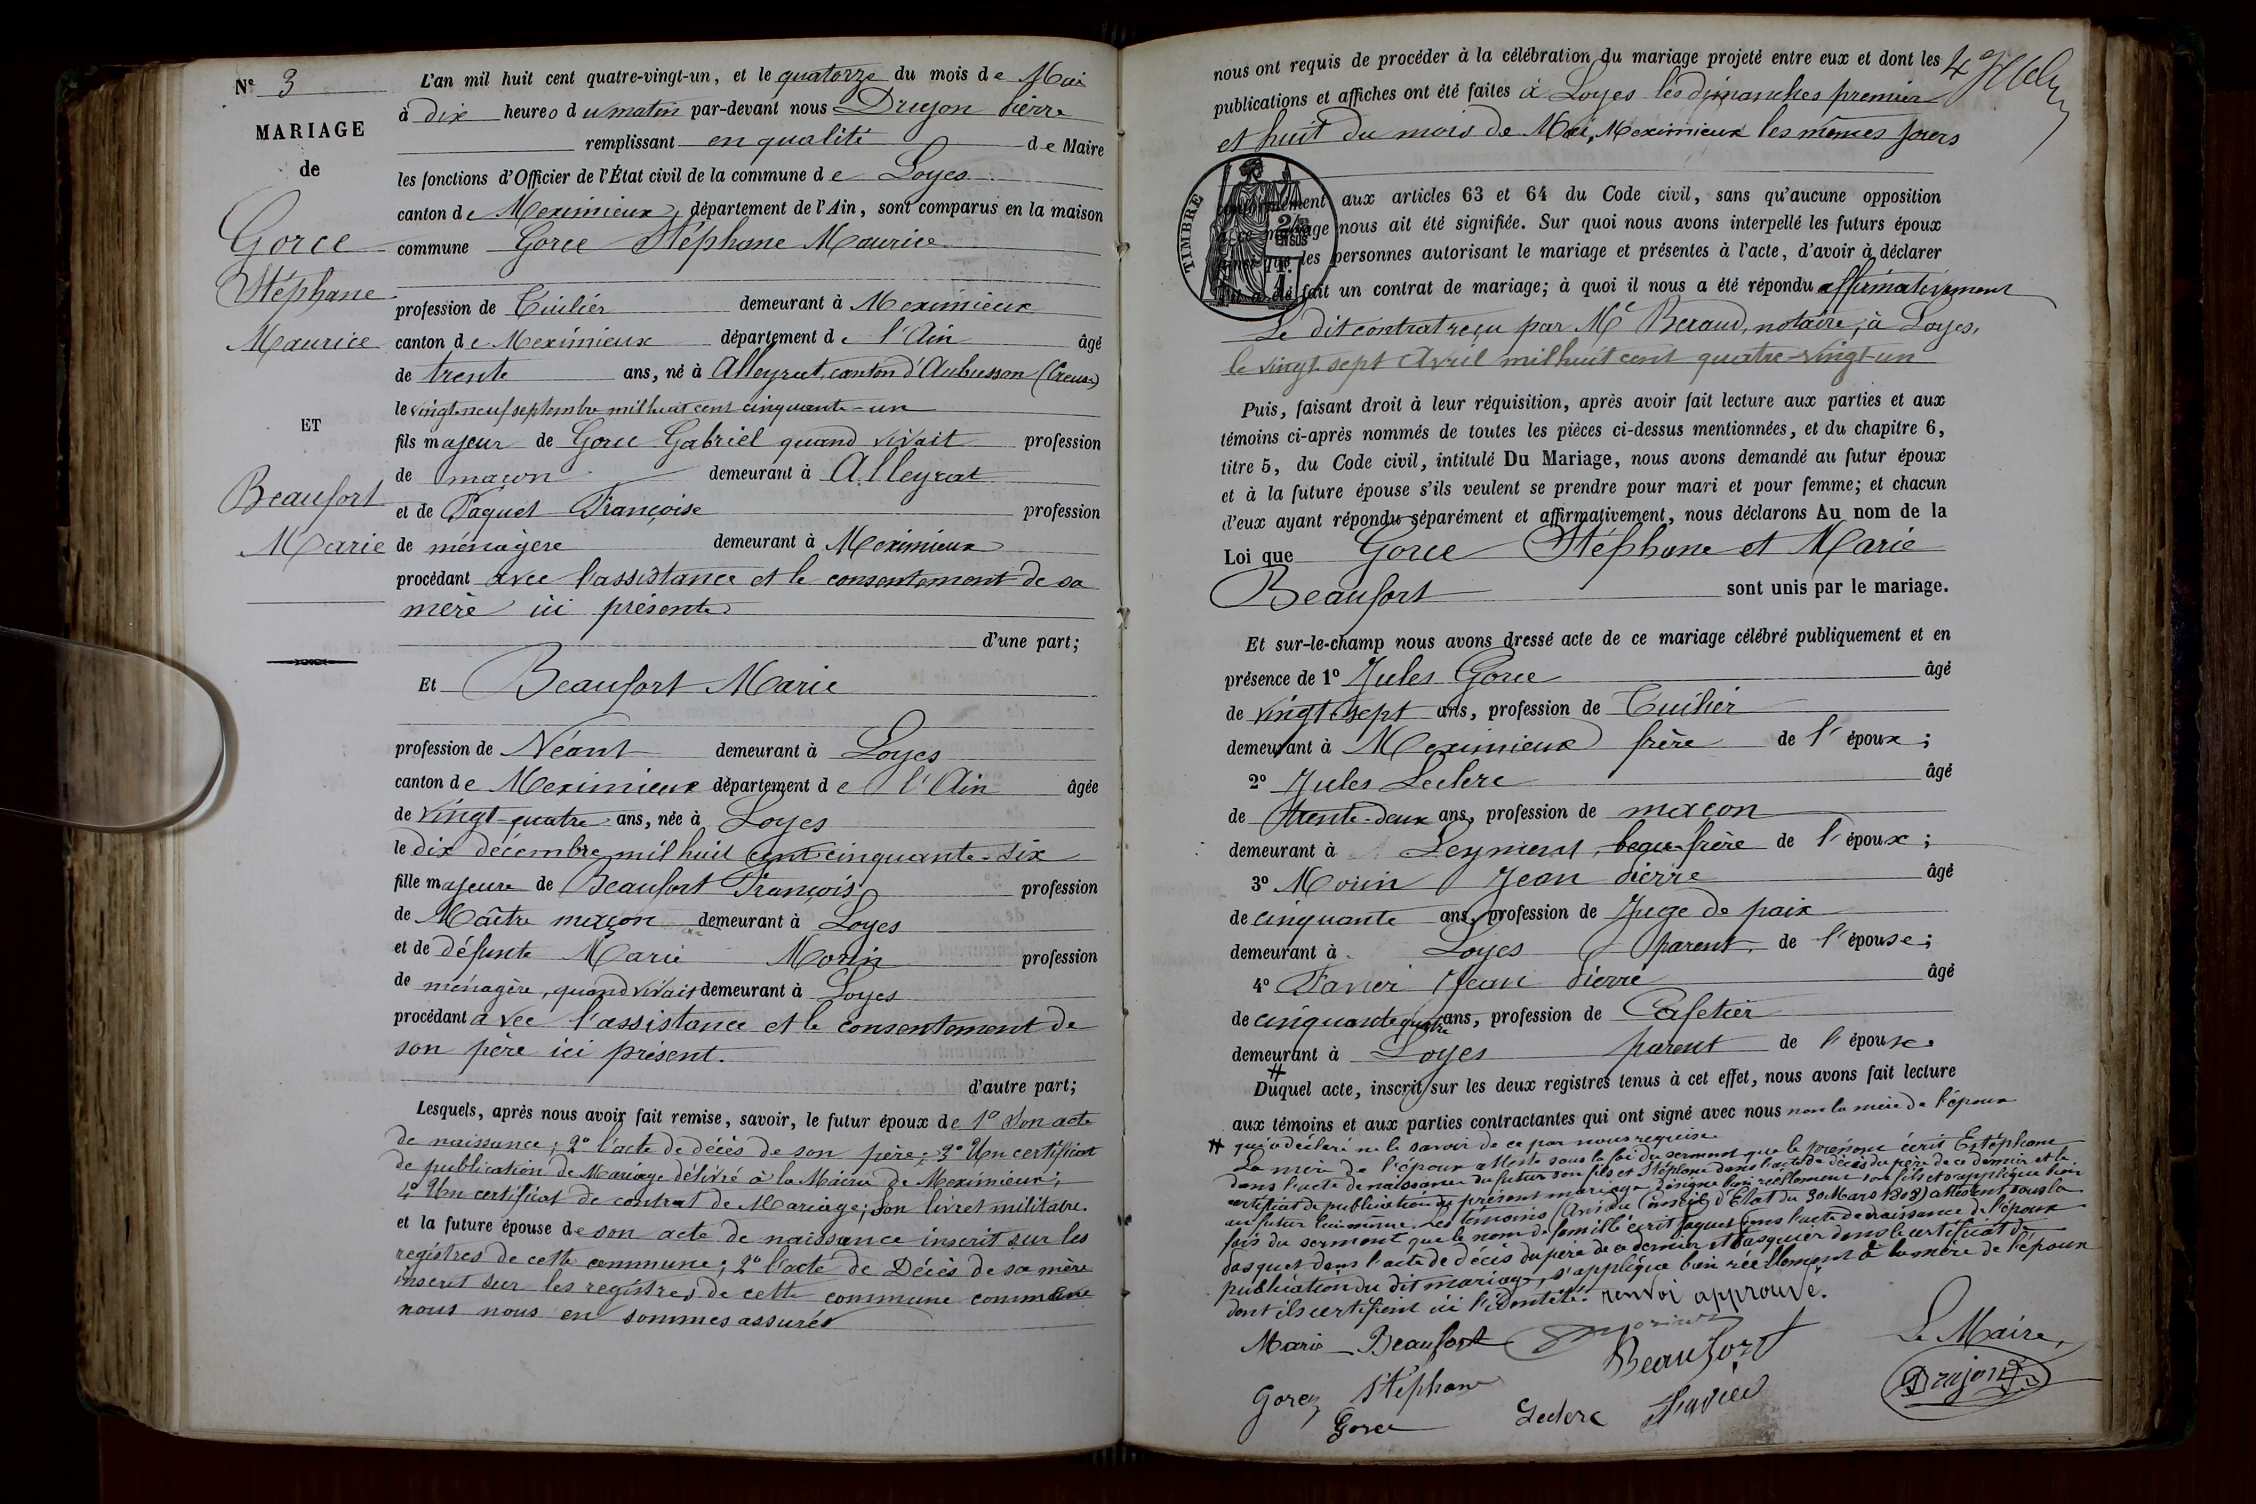 N° 3
MARIAGE
de
Gorce
Stéphane
Maurice
ET
Beaufort
Marie
L'an mil huit cent quatre-vingt-un, et le quatorze du mois de Mai
à dix heures du matin par-devant nous Drujon Pierre
remplissant en qualité de Maire
les fonctions d'Officier de l'État civil de la commune de Loyes
canton de Meximieux, département de l'Ain, sont comparus en la maison
commune Gorce Stéphane Maurice
profession de Tuilier demeurant à Meximieux
canton de Meximieux département de l'Ain âgé
de trente ans, né à Alleyrat, canton d'Aubusson (Creuse)
le vingt-neuf septembre mil huit cent cinquante-un
fils majeur de Gorce Gabriel quand vivait profession
de maçon demeurant à Alleyrat
et de Paquet Françoise profession
de ménagère demeurant à Meximieux
procédant avec l'assistance et le consentement de sa
mère ici présente
d'une part;
Et Beaufort Marie
profession de Néant demeurant à Loyes
canton de Meximieux département de l'Ain âgée
de vingt-quatre ans, née à Loyes
le dix décembre mil huit cent cinquante-six
fille majeure de Beaufort François profession
de Maître maçon demeurant à Loyes
et de défunte Marie Morin profession
de ménagère, quand vivait demeurant à Loyes
procédant avec l'assistance et le consentement de
son père ici présent.
d'autre part;
Lesquels, après nous avoir fait remise, savoir, le futur époux de 1° Son acte
de naissance; 2° l'acte de décès de son père; 3° Un certificat
de publication de Mariage délivré à la Mairie de Meximieux;
4° Un certificat de contrat de Mariage; Son livret militaire.
et la future épouse de son acte de naissance inscrit sur les
registres de cette commune; 2° l'acte de Décès de sa mère
inscrit sur les registres de cette commune comme
nous nous en sommes assurés
nous ont requis de procéder à la célébration du mariage projeté entre eux et dont les
publications et affiches ont été faites à Loyes les dimanches premier
et huit du mois de Mai, Meximieux les mêmes jours
TIMBRE
conformément aux articles 63 et 64 du Code civil, sans qu'aucune opposition
à ce mariage nous ait été signifiée. Sur quoi nous avons interpellé les futurs époux
ainsi que les personnes autorisant le mariage et présentes à l'acte, d'avoir à déclarer
s'il a été fait un contrat de mariage; à quoi il nous a été répondu affirmativement
Le dit contrat reçu par Me Beraud, notaire, à Loyes,
le vingt-sept Avril mil huit cent quatre-vingt-un
Puis, faisant droit à leur réquisition, après avoir fait lecture aux parties et aux
témoins ci-après nommés de toutes les pièces ci-dessus mentionnées, et du chapitre 6,
titre 5, du Code civil, intitulé Du Mariage, nous avons demandé au futur époux
et à la future épouse s'ils veulent se prendre pour mari et pour femme; et chacun
d'eux ayant répondu séparément et affirmativement, nous déclarons Au nom de la
Loi que Gorce Stéphane et Marie
Beaufort sont unis par le mariage.
Et sur-le-champ nous avons dressé acte de ce mariage célébré publiquement et en
présence de 1° Jules Gorce âgé
de vingt-sept ans, profession de Tuilier
demeurant à Meximieux frère de l'époux;
2° Jules Leclerc âgé
de trente-deux ans, profession de maçon
demeurant à Leyment, beau-frère de l'époux;
3° Morin Jean Pierre âgé
de cinquante ans, profession de Juge de paix
demeurant à Loyes parent de l'épouse;
4° Favier Jean Pierre âgé
de cinquante quatre ans, profession de Cafetier
demeurant à Loyes parent de l'épouse
# Duquel acte, inscrit sur les deux registres tenus à cet effet, nous avons fait lecture
aux témoins et aux parties contractantes qui ont signé avec nous non la mère de l'époux
# qui a déclaré ne le savoir de ce par nous requise.
La mère de l'époux atteste sous la foi du serment que le prénom écrit Estéphane
dans l'acte de naissance du futur son fils et Stéphane dans l'acte de décès du père de ce dernier et le
certificat de publication du présent mariage désigne bien réellement son fils et s'applique bien
au futur lui-même. Les témoins (Avis du Conseil d'État du 30 Mars 1808) attestent sous la
fois du serment que le nom de famille écrit Paquet dans l'acte de naissance de l'époux
Pasquet dans l'acte de décès du père de ce dernier et Pasquier dans le certificat de
publication du dit mariage, s'applique bien réellement à la mère de l'époux
dont ils certifient ici l'identité. renvoi approuvé.
Marie Beaufort Morin
Beaufort Le Maire,
Gorce Stéphane Drujon
Gorce Leclerc Favier